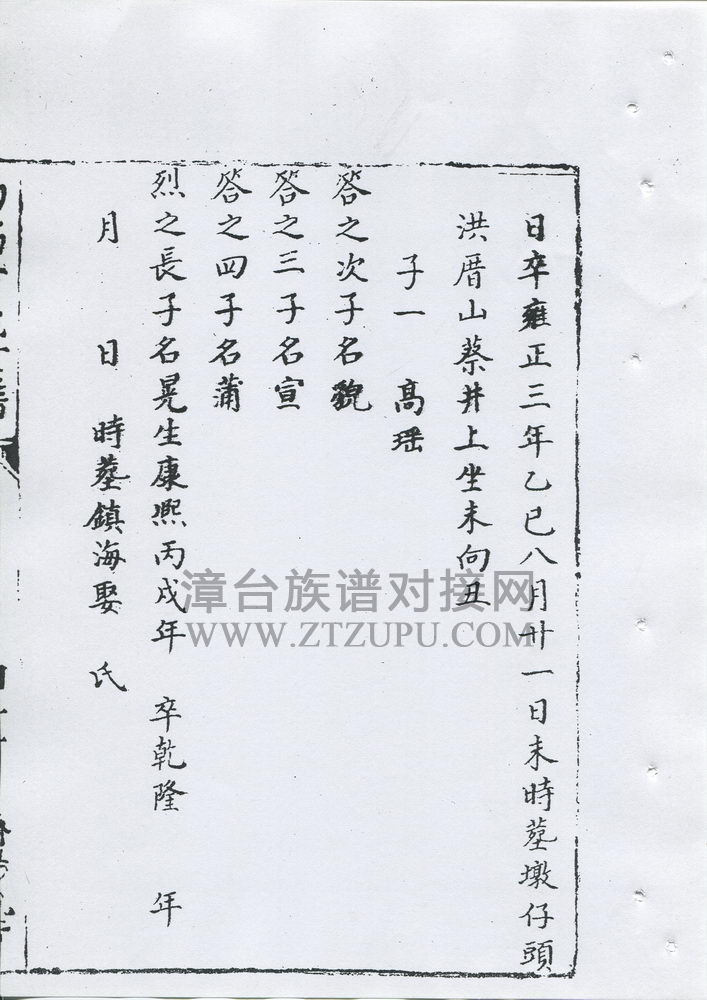 日卒雍正三年乙巳八月廿一日未時墓墩仔頭
洪厝山蔡井上坐未向丑
子一 高瑶
答之次子名貌
答之三子名宣
答之四子名蒲
烈之長子名晃生康熙丙戌年 卒乾隆 年
月 日 時墓鎮海娶 氏
漳台族谱对接网
WWW.ZTZUPU.COM